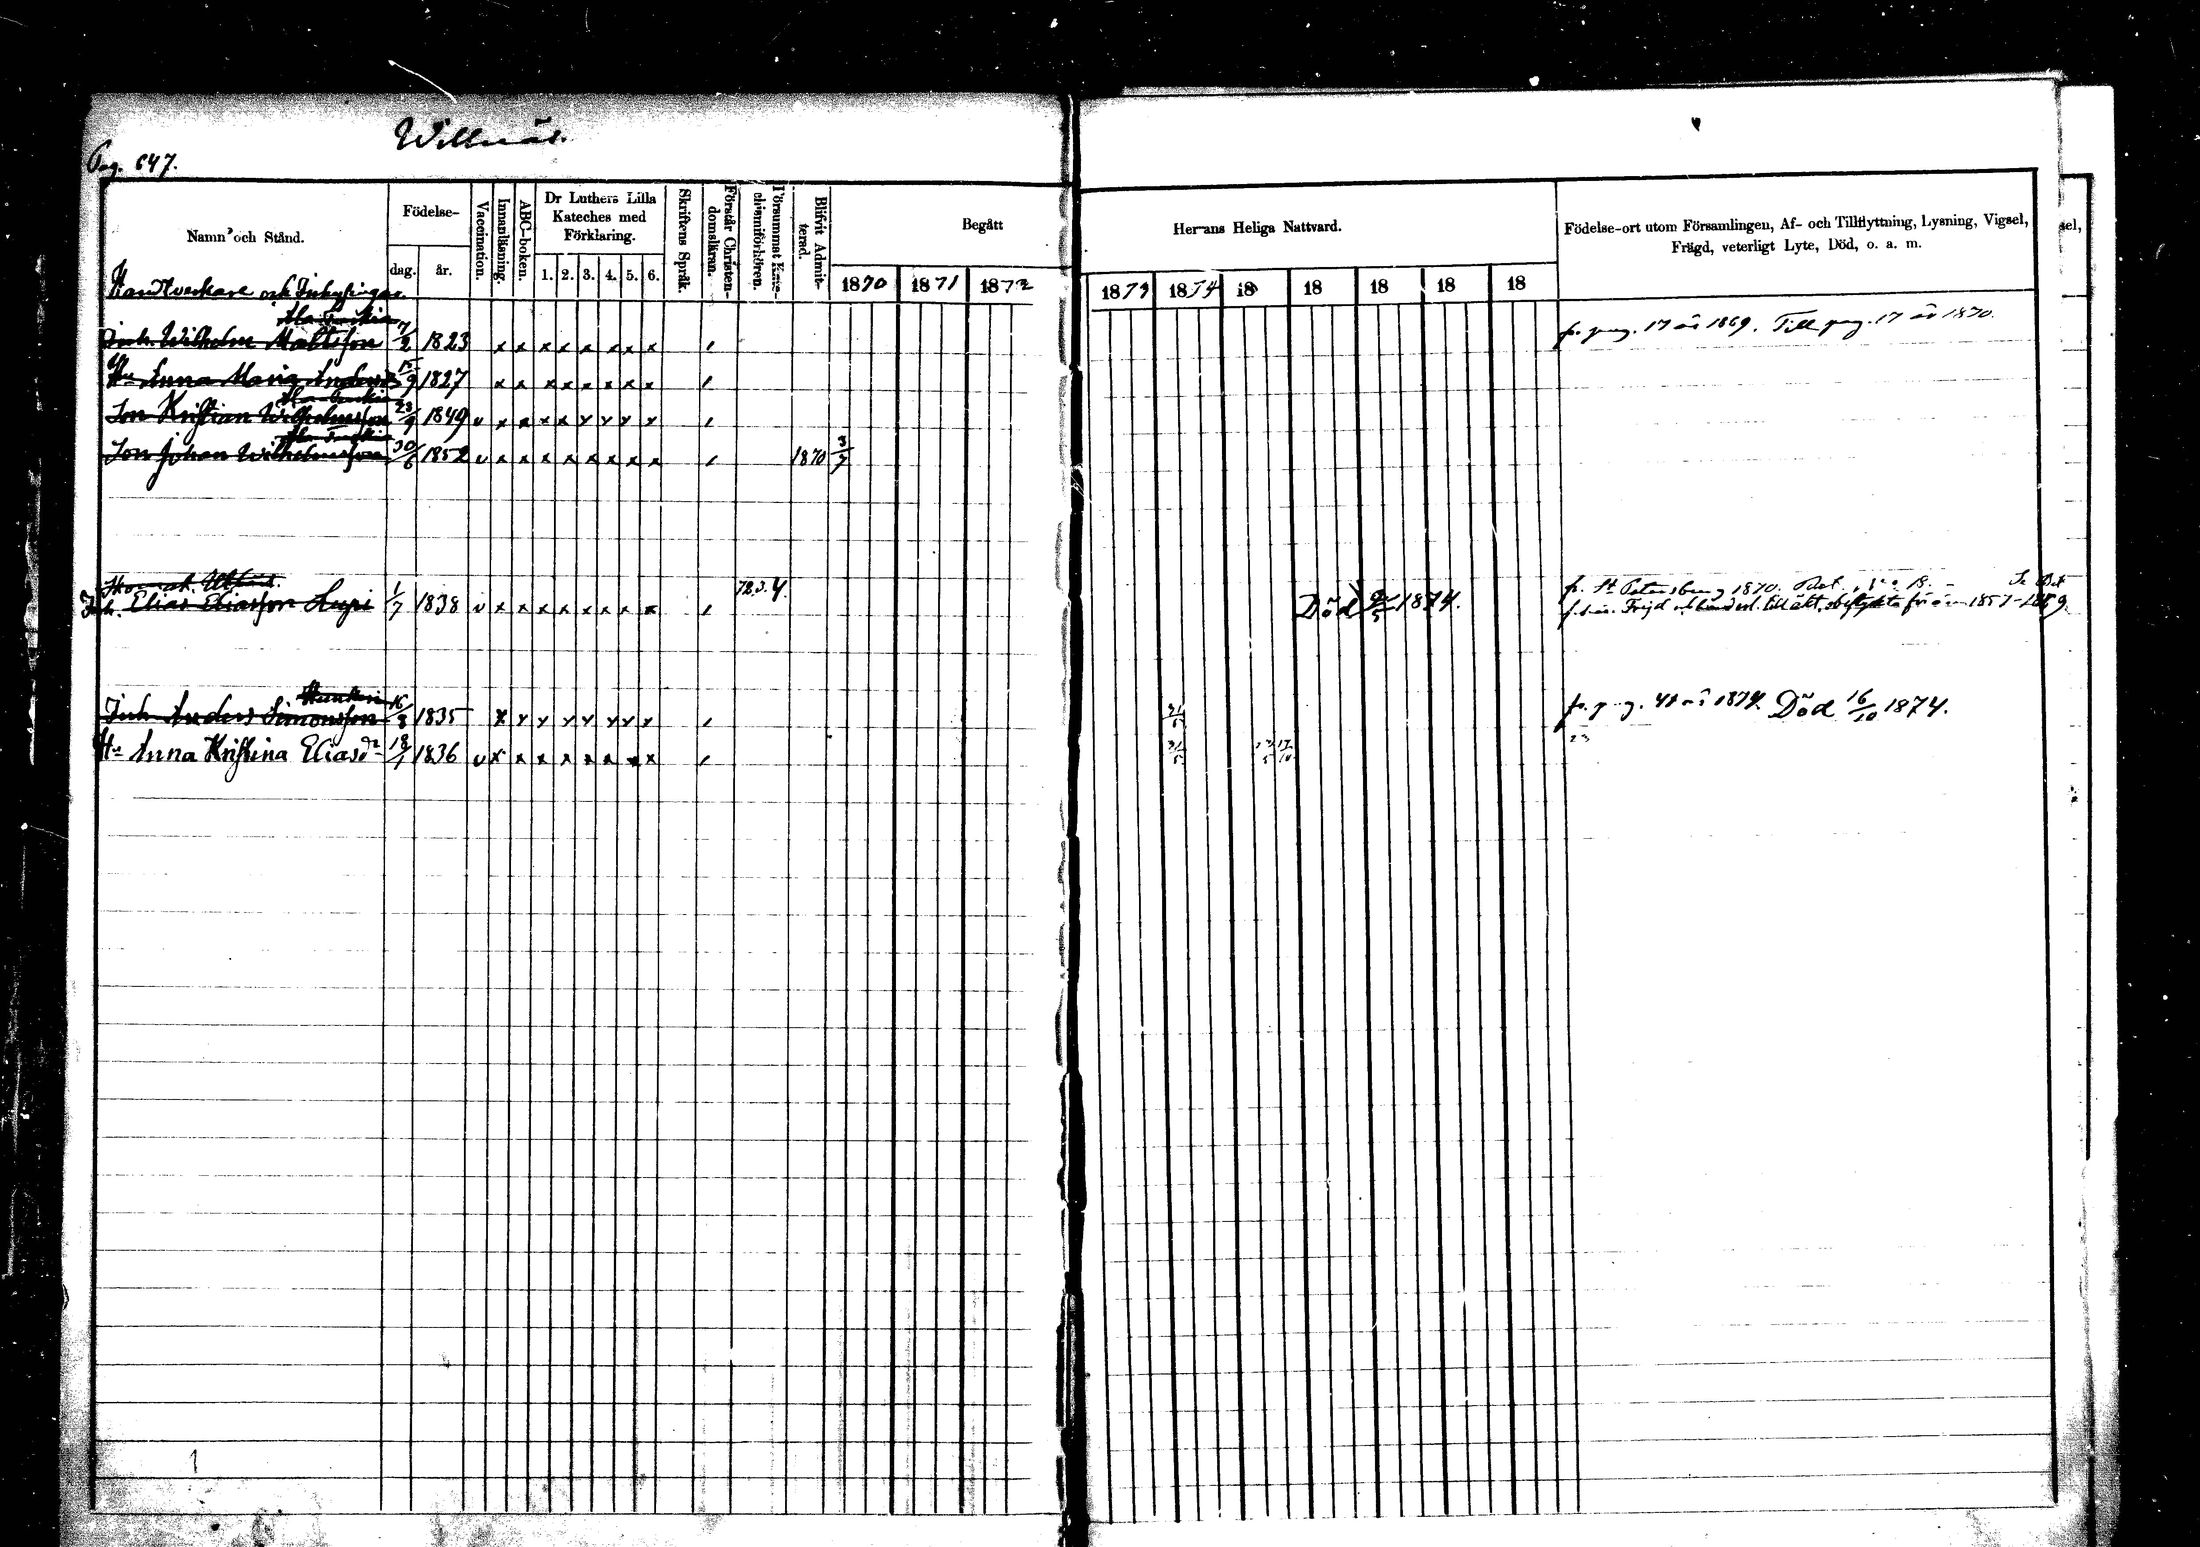 Willnäs.
Pag. 647.
Namn och Stånd.
Födelse-
dag. år.
Vaccination.
Innanläsning.
ABC-boken.
Dr Luthers Lilla Kateches med Förklaring.
1. 2. 3. 4. 5. 6.
Skriftens Språk.
Förstår Christendomsläran.
Försummat Katechismiförhören.
Blifvit Admitterad.
Begått Herrans Heliga Nattvard.
1870 1871 1872 1873 1874 18 18 18 18 18
Födelse-ort utom Församlingen, Af- och Tillflyttning, Lysning, Vigsel,
Frägd, veterligt Lyte, Död, o. a. m.
Handtverkare och Inhysingar.
Inh. Wilhelm Mattsson 7/2 1823 x x x x x x x x fr. pag. 17 år 1869. Till pag. 17 år 1870.
Hu Anna Maria 15/9 1827 x x x x x x x x
Son Kristian Wilhelmsson 23/9 1849 v x x x x x x x x
Son Johan Wilhelmsson 30/6 1852 v x x x x x x x x 1870 3/7
Inh. Elias Eliasson Lupi 1/7 1838 v x x x x x x x x 72.3.4. Död 1874.
fr. St Petersburg 1870.
1857-1869
Inh Anders Simonsson 16/8 1835 x x x x x x x x 31/5 fr. pag. 48 år 1874. Död 16/10 1874.
Hu Anna Kristina Eliasdr 18/1 1836 v x x x x x x x x 31/5 23/5 17/10